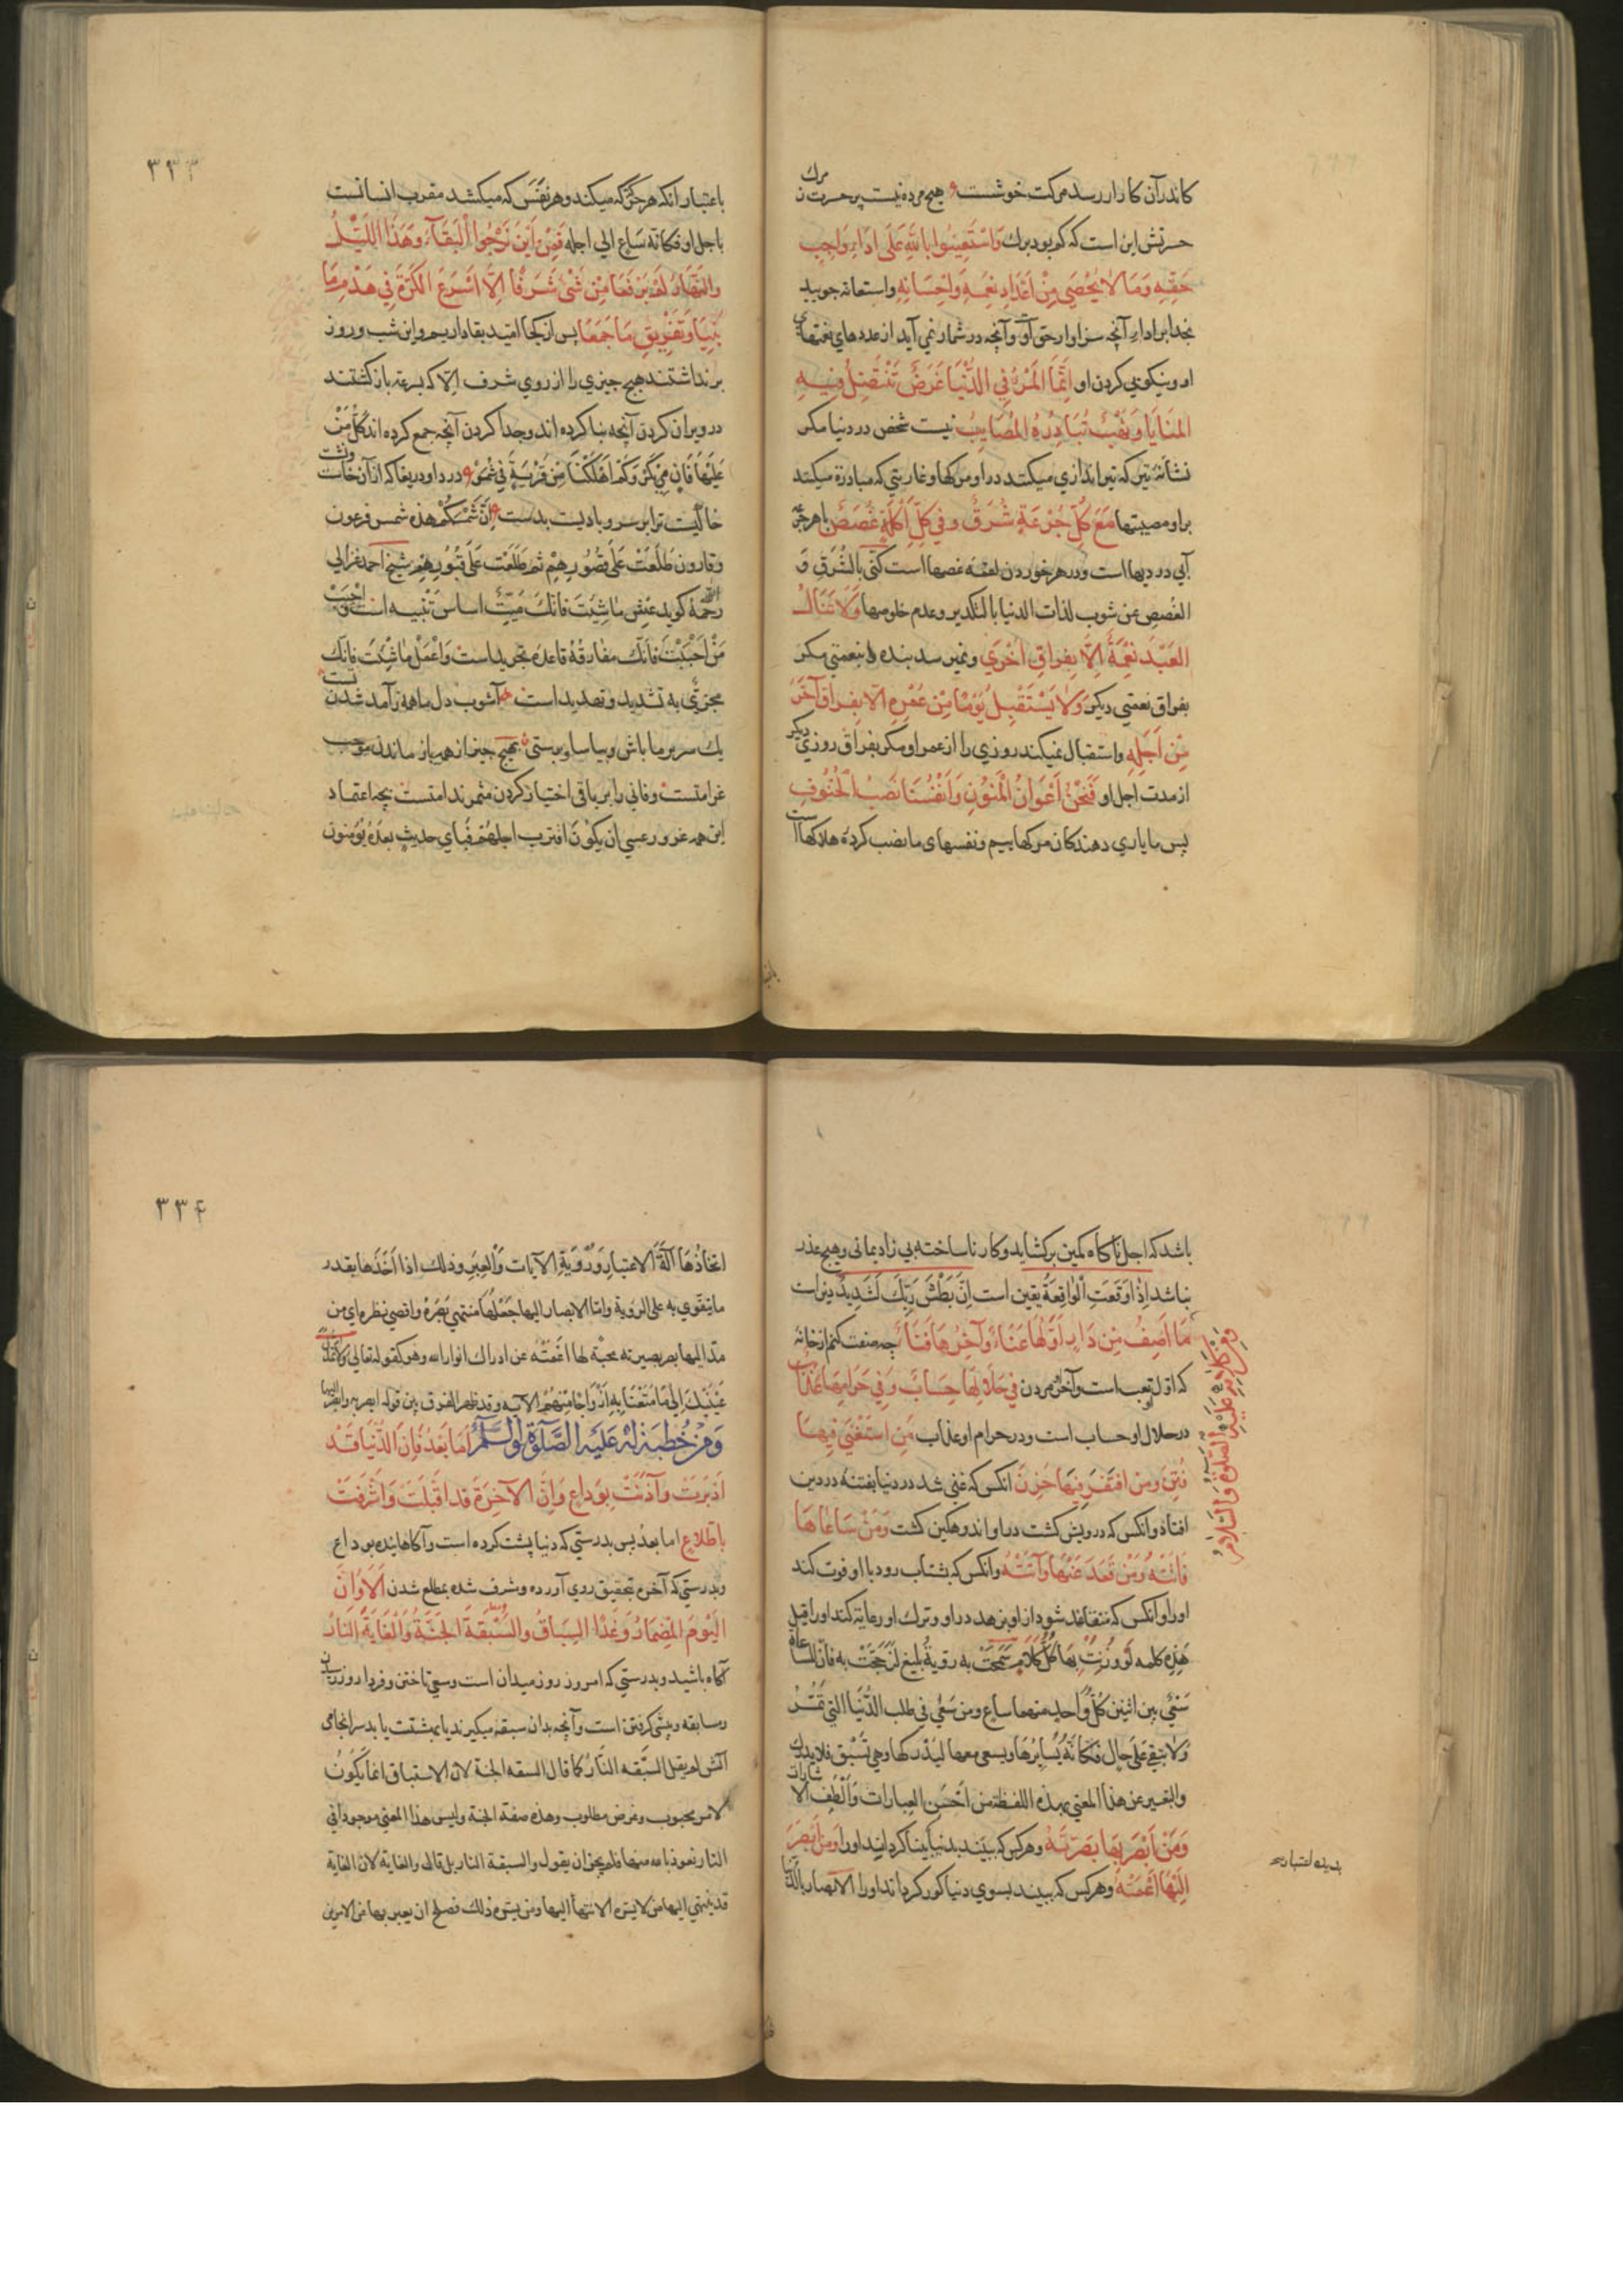 کاندرآن کار ار رسد مرکت خوشست هیچ مرده نیست پر حسرت ز مرك
حسرتش این است که کم بود برك وَاسْتَعِینُوا بِاللهِ عَلَی اَدَاءِ وَاجِبِ
حَقِّهِ وَمَا لَا یُحْصَی مِنْ اَعْدَادِ نِعَمِهِ وَاِحْسَانِهِ واستعانه جویید
بخدا بر اداء آنچه سزاوار حق اوت وآنچه در شمار نمی آید از عددهای نعمتهای
او ونیکویی کردن او اِنَّمَا الْمَرْءُ فِی الدُّنْیَا غَرَضٌ تَنْتَضِلُ فِیهِ
الْمَنَایَا وَنَهْبٌ تُبَادِرُهُ الْمَصَایِبُ نیست شخص در دنیا مکر
نشانهٔ تیر که تیراندازی میکنند در او مرکها وغارتی که مبادرة میکنند
براو مصیبتها مَعَ کُلِّ جُرْعَةٍ شَرَقٌ وَفِی کُلِّ اَکْلَةٍ غُصَصٌ با هر جرعهٔ
آبی دردیها است ودر هر خوردن لقمهٔ غصها است کنی بالشرق و
الغصص عن شوب لذات الدنیا بالتکدیر وعدم خلوصها وَلَا یَنَالُ
الْعَبْدُ نِعْمَةً اِلَّا بِفِرَاقِ اُخْرَی ونمیرسد بنده بنعمتی مکر
بفراق نعمتی دیکر وَلَا یَسْتَقْبِلُ یَوْمًا مِنْ عُمْرِهِ اِلَّا بِفِرَاقِ آخَرَ
مِنْ اَجَلِهِ واستقبال نمیکند روزی را از عمر او مکر بفراق روزی دیکر
از مدت اجل او فَنَحْنُ اَعْوَانُ الْمَنُونِ وَاَنْفُسُنَا نَصْبُ الْحُتُوفِ
پس ما یاری دهندکان مرکهاییم ونفسهای ما نصب کردهٔ هلاکهااست
۳۳۳
باعتبار انکه هر حرکتی که میکند وهر نفس که میکشد مقرب انسانست
باجل او فکانه ساع الی اجله فَمِنْ اَیْنَ نَرْجُوا الْبَقَاءَ وَهَذَا اللَّیْلُ
وَالنَّهَارُ لَمْ یَرْفَعَا مِنْ شَیْءٍ شَرَفًا اِلَّا اَسْرَعَا الْکَرَّةَ فِی هَدْمِ مَا
بَنَیَا وَتَفْرِیقِ مَا جَمَعَا پس از کجا امید بقا داریم واین شب وروز
برنداشتند هیچ چیزی را از روی شرف الا که بسرعة بازکشتند
در ویران کردن آنچه بنا کرده اند وجدا کردن آنچه جمع کرده اند کُلُّ مَنْ
عَلَیْهَا فَانٍ وَکَمْ اَهْلَکْنَا مِنْ قَرْیَةٍ درد او دریغا که از آن خاست ونشت
خاکیست ترا بر سر وبادیت بدست اِنَّ شَمْسَکُمْ هذه شمس فرعون
وقارون طَلَعَتْ عَلَی قُصُورِهِمْ ثم طَلَعَت عَلَی قُبُورِهِمْ شیخ احمد غزالی
رحمه الله کوید عش ما شِئْتَ فانك مَیِّت اساس تنبیه است واحبب
مَنْ اَحْبَبْتَ فَاِنَّكَ مفارقه قاعدهٔ تجرید است وَاعْمَلْ ما شِئْتَ فَاِنَّكَ
مجزیٌ به تشدید وتهدید است آشوب دل ما همه ز آمد شدن تست
یك سر بر ما باش وبیاسا وبرستی بهیچ چیز از همه باز ماندن موجب
غرامتست وفانی را بر باقی اختیار کردن مثمر ندامتست بچه اعتماد
این همه غرور عسی ان یکُونَ اقترب اجلهم فَبِاَی حدیث بعده یؤمنون
باشد که اجل ناکاه کمین برکشاید وکار ناساخته بی زاد بمانی وهیچ عذر
نباشد اِذَا وَقَعَتِ الْوَاقِعَةُ یقین است اِنَّ بَطْشَ رَبِّكَ لَشَدِیدٌ
وَمِنْ کَلَامٍ لَهُ عَلَیْهِ الصَّلٰوةُ وَالسَّلَامُ
مَا اَصِفُ مِنْ دَارٍ اَوَّلُهَا عَنَاءٌ وَآخِرُهَا فَنَاءٌ چه صفت کنم از خانهٔ
که اول او تعب است وآخر او مردن فِی حَلَالِهَا حِسَابٌ وَفِی حَرَامِهَا عِقَابٌ
در حلال او حساب است ودر حرام او عذاب مَنِ اسْتَغْنَی فِیهَا
فُتِنَ وَمَنِ افْتَقَرَ فِیهَا حَزِنَ انکس که غنی شد در دنیا بفتنه در دین
افتاد وانکس که درویش کشت در او اندوهکین کشت وَمَنْ سَاعَاهَا
فَاتَتْهُ وَمَنْ قَعَدَ عَنْهَا وَآتَتْهُ وانکس که بشتاب رود با او فوت کند
اورا وانکس که متقاعد شود از او بزهد در او وترك او رعایة کند اورا قیل
هَذِهِ کلمه لَوْ وُزِنَتْ بها کُلُّ کَلَامٍ به رویة بلیغ لَرَجَحَتْ به فان المساعاة
سَعْیٌ بین اثنین کُلُّ وَاحدٍ منهما ساع ومن سَعَی فی طلب الدُّنیَا التی تَمُرُّ
وَلَا تبقی عَلَی حال فکانه یُسایرُها ویسعی معها لیُدْرکها وهی تَسْبق فلا یدرك
والتعبیر عن هذا المعنی بهذه اللفظة من اَحْسَنِ العبارات وَاَلْطَفِ الاشارات
وَمَنْ اَبْصَرَ بِهَا بَصَّرَتْهُ وهر کس که بیند بدنیا بینا کرداند اورا وَمَنْ اَبْصَرَ
بدیده اعتبار
اِلَیْهَا اَعْمَتْهُ وهر کس که بیند بسوی دنیا کور کرداند اورا الابصار بالدنیا
۳۳۴
اتخاذُهَا آلَةَ الاعتبار وَرُؤیَةِ الآیات وَالْعِبَرِ وذلك اذا اَخَذَها بقدر
ما یتقوی به علی الرؤیة واما الابصار الیها جَعْلُهَا منتهی بَصَرِهِ واقصی نظره ای من
مد الیها بصر بصیرته محبةً لها اعمته عن ادراك انوار الله وهو کقوله تعالی ولا تمدن
عَیْنَیْكَ اِلَی مَا مَتَّعْنَا بِهِ اَزْوَاجًا مِنْهُمْ الآیه وقد ظهر الفرق بین قوله ابصر بها وابصر الیها
وَمِنْ خُطْبَةٍ لَهُ عَلَیْهِ الصَّلَوةُ وَالسَّلَامُ اَمَّا بَعْدُ فَاِنَّ الدُّنْیَا قَدْ
اَدْبَرَتْ وَآذَنَتْ بِوَدَاعٍ وَاِنَّ الْآخِرَةَ قَدْ اَقْبَلَتْ وَاَشْرَفَتْ
بِاطِّلَاعٍ اما بعد پس بدرستی که دنیا پشت کرده است وآکاهاننده بوداع
وبدرستی که آخرة بتحقیق روی آورده ومشرف شده بمطلع شدن اَلَا وَاِنَّ
الْیَوْمَ الْمِضْمَارُ وَغَدًا السِّبَاقُ وَالسَّبَقَةُ الْجَنَّةُ وَالْغَایَةُ النَّارُ
آکاه باشید وبدرستی که امروز روز میدان است وسعی تاختن وفردا روز
مسابقه وپیشی کرفتن است وآنچه بدان سبقه میکیرند یا بهشتست یا بد سرانجامی
آتش لم یقل السَّبَقه النَّار کما قال السبقه الجنة لان الاستباق انما یکُونُ
لامر محبوب وغرض مطلوب وهذه صفة الجنة ولیس هذا المعنی موجودا فی
النار نعوذ بالله منها فلم یجز ان یقول والسبقة النار بل قال والغایة لان الغایة
قد ینتهی الیها من لا یسره الانتهاء الیها ومن یسره ذلك فصلح ان یعبر بها عن الامرین